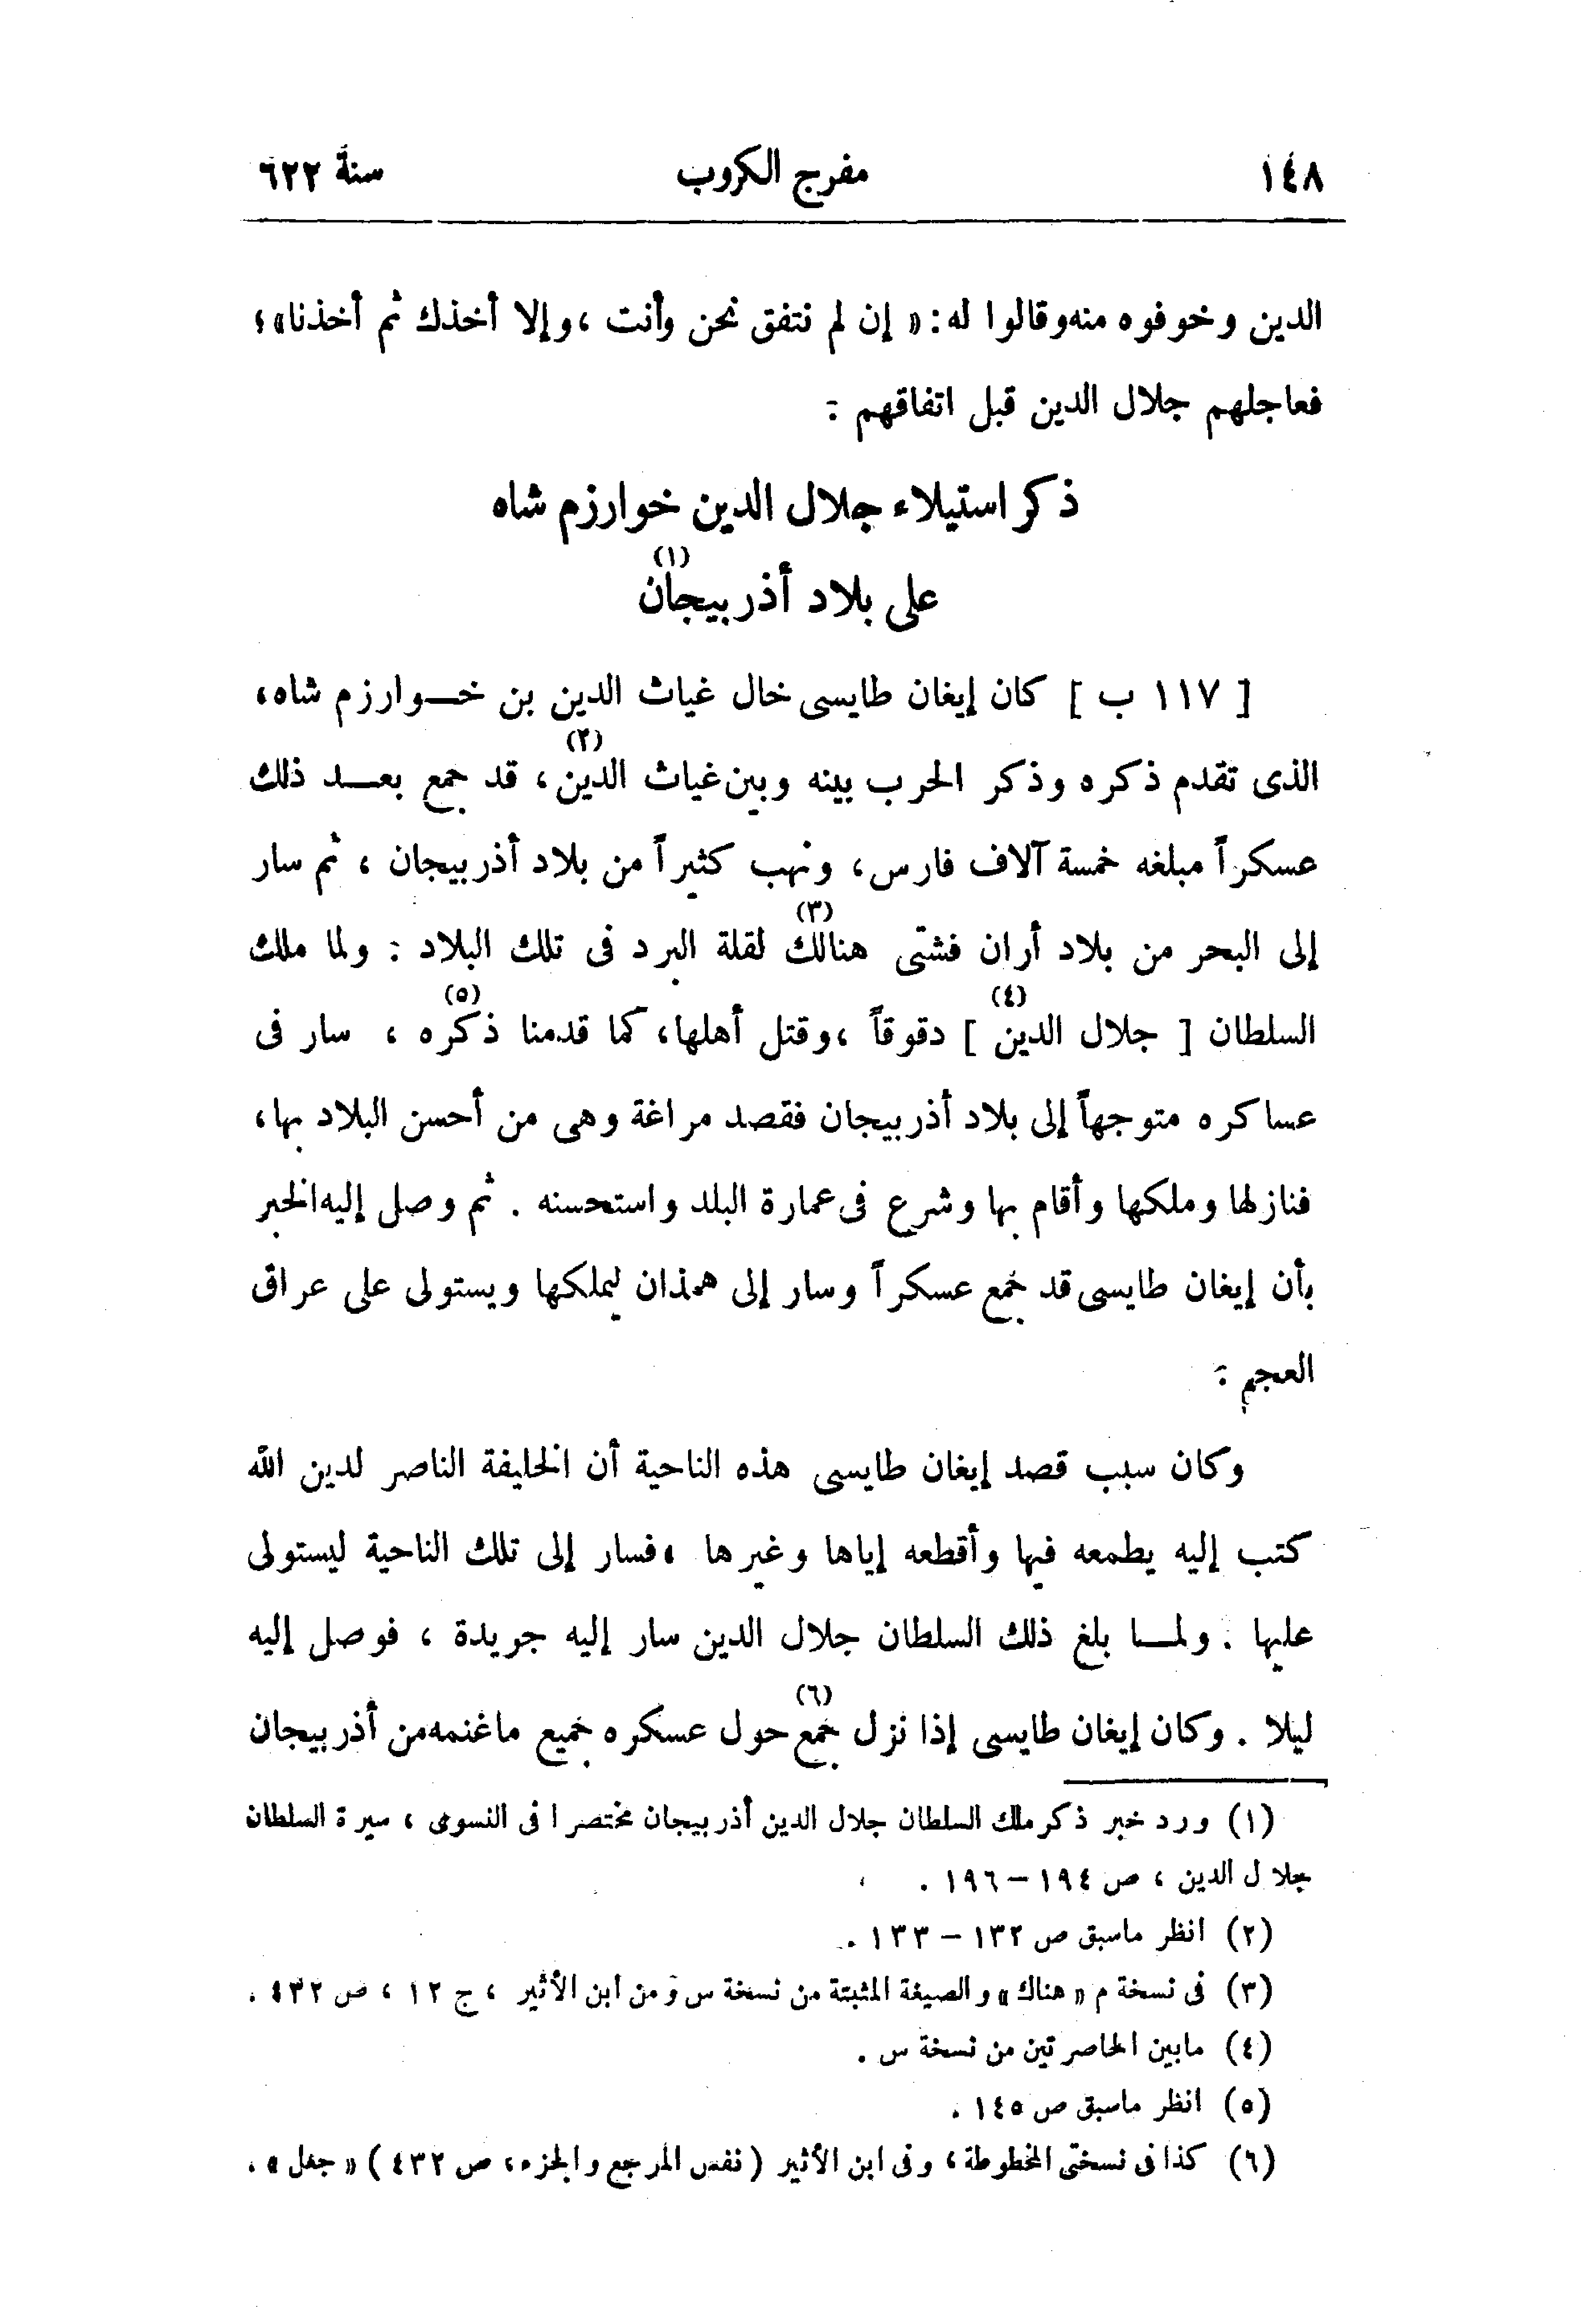 ١٤٨ مفرج الكروب سنة ٦٢٢
الدين وخوفوه منه وقالوا له : « إن لم نتفق نحن وأنت ، وإلا أخذك ثم أخذنا » ؛
فعاجلهم جلال الدين قبل اتفاقهم :
ذكر استيلاء جلال الدين خوارزم شاه
على بلاد أذربيجان (١)
[ ١١٧ ب ] كان إيغان طايسى خال غياث الدين بن خوارزم شاه ،
الذى تقدم ذكره وذكر الحرب بينه وبين غياث الدين (٢) ، قد جمع بعد ذلك
عسكراً مبلغه خمسة آلاف فارس ، ونهب كثيراً من بلاد أذربيجان ، ثم سار
إلى البحر من بلاد أران فشتّى هنالك (٣) لقلة البرد فى تلك البلاد : ولما ملك
السلطان [ جلال الدين ] (٤) دقوقاً ، وقتل أهلها ، كما قدمنا ذكره (٥) ، سار فى
عساكره متوجهاً إلى بلاد أذربيجان فقصد مراغة وهى من أحسن البلاد بها ،
فنازلها وملكها وأقام بها وشرع فى عمارة البلد واستحسنه . ثم وصل إليه الخبر
بأن إيغان طايسى قد جمع عسكراً وسار إلى همذان ليملكها ويستولى على عراق
العجم :
وكان سبب قصد إيغان طايسى هذه الناحية أن الخليفة الناصر لدين الله
كتب إليه يطمعه فيها وأقطعه إياها وغيرها ، فسار إلى تلك الناحية ليستولى
عليها . ولما بلغ ذلك السلطان جلال الدين سار إليه جريدة ، فوصل إليه
ليلا . وكان إيغان طايسى إذا نزل جمع (٦) حول عسكره جميع ما غنمه من أذربيجان
(١) ورد خبر ذكر ملك السلطان جلال الدين أذربيجان مختصرا فى النسوى ، سيرة السلطان
جلال الدين ، ص ١٩٤ – ١٩٦ .
(٢) انظر ماسبق ص ١٣٢ – ١٣٣ .
(٣) فى نسخة م « هناك » والصيغة المثبتة من نسخة س ومن ابن الأثير ، ج ١٢ ، ص ٤٣٢ .
(٤) مابين الحاصرتين من نسخة س .
(٥) انظر ماسبق ص ١٤٥ .
(٦) كذا فى نسختى المخطوطة ، وفى ابن الأثير ( نفس المرجع والجزء ، ص ٤٣٢ ) « جعل » .